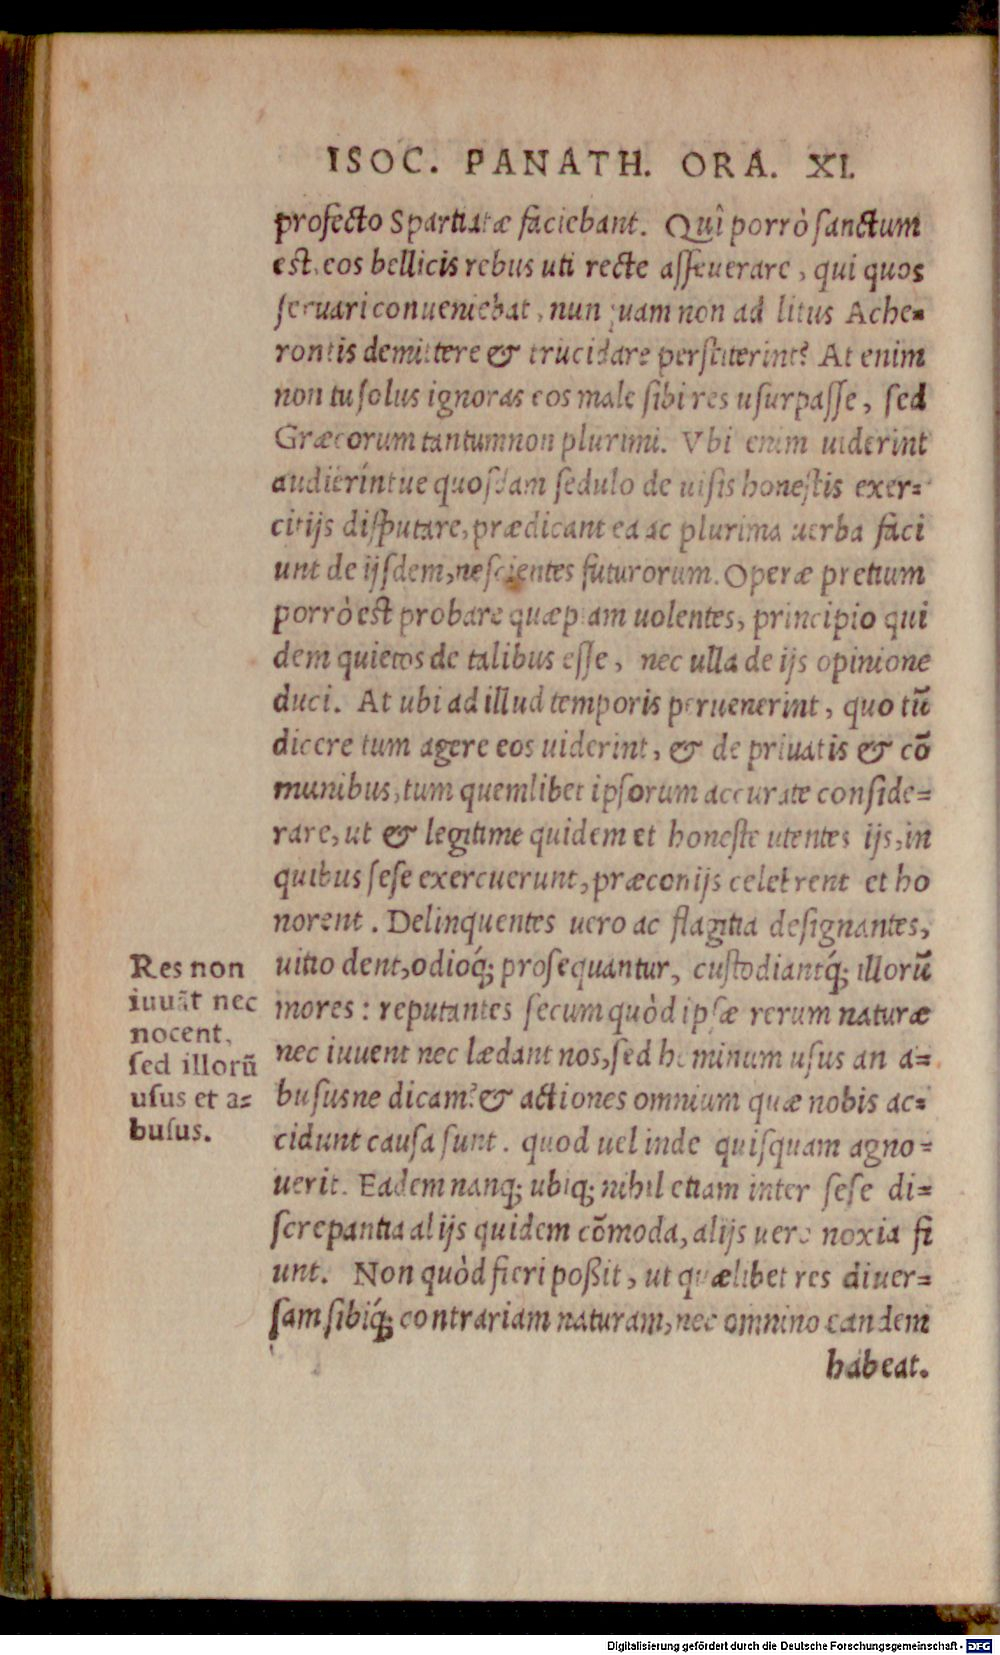 ISOC. PANATH. ORA. XI.
profecto Spartiatæ faciebant. Quî porrò sanctum
est, eos bellicis rebus uti recte asseuerare, qui quos
seruari conueniebat, nunquam non ad litus Ache-
rontis demittere & trucidare perstiterint? At enim
non tu solus ignoras eos male sibi res usurpasse, sed
Græcorum tantumnon plurimi. Vbi enim uiderint
audierintue quosdam sedulo de uisis honestis exer-
citijs disputare, prædicant ea ac plurima uerba faci
unt de ijsdem, nescientes futurorum. Operæ pretium
porrò est probare quæpiam uolentes, principio qui
dem quietos de talibus esse, nec ulla de ijs opinione
duci. At ubi ad illud temporis peruenerint, quo tũ
dicere tum agere eos uiderint, & de priuatis & cõ
munibus, tum quemlibet ipsorum accurate conside-
rare, ut & legitime quidem et honeste utentes ijs, in
quibus sese exercuerunt, præconijs celebrent et ho
norent. Delinquentes uero ac flagitia designantes,
uitio dent, odioq́; prosequantur, custodiantq́; illorũ
mores: reputantes secum quòd ipsæ rerum naturæ
nec iuuent nec lædant nos, sed hominum usus an a-
bususne dicam? & actiones omnium quæ nobis ac-
cidunt causa sunt. quod uel inde quisquam agno-
uerit. Eadem nanq; ubiq; nihil etiam inter sese di-
screpantia alijs quidem cõmoda, alijs uero noxia fi
unt. Non quòd fieri poßit, ut quælibet res diuer-
sam sibiq́; contrariam naturam, nec omnino eandem
habeat.
Res non
iuuãt nec
nocent,
sed illorũ
usus et a-
busus.
Digitalisierung gefördert durch die Deutsche Forschungsgemeinschaft - DFG